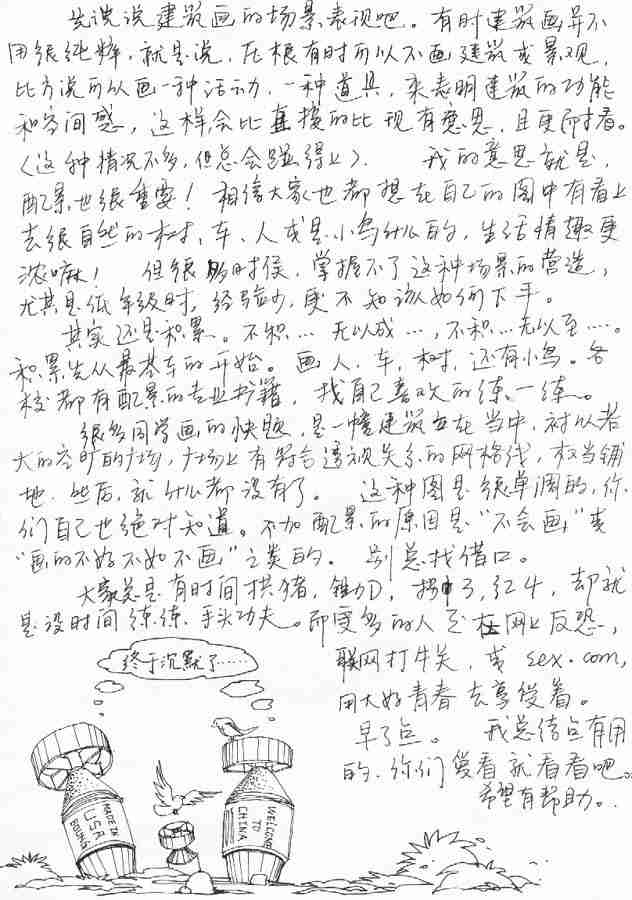 先谈谈建筑画的场景表现吧。有时建筑画并不
用很纯粹，就是说，在很有时可以不画建筑或景观，
比方说可以画一种活动，一种道具，来表明建筑的功能
和空间感，这样会比直接的比现有意思，且更耐看。
（这种情况不多，但总会碰得上）． 我的意思就是，
配景也很重要！相信大家也都想在自己的图中有看上
去很自然的树、车、人或是小鸟什么的，生活情趣更
浓嘛！ 但很多时侯，掌握不了这种场景的营造，
尤其是低年级时，经验少，更不知该如何下手。
其实还是积累。不积…无以成…，不积…无以至…。
积累先从最基本的开始。画人、车、树，还有小鸟。各
校都有配景的专业书籍，找自己喜欢的练一练。
很多同学画的快题，是一幢建筑立在当中，衬以若
大的空旷的广场，广场上有符合透视关系的网格线，权当铺
地．然后，就什么都没有了。 这种图是很单调的，你
们自己也绝对知道。不加配景的原因是“不会画，”或
“画的不好不如不画”之类的． 别总找借口。
大家总是有时间拱猪，锄大D，拐3，红4，却就
是没时间练练手头功夫。而更多的人至在网上反恐，
联网打牛关，或 sex.com，
用大好青春去享受着。
早了点。 我总结点有用
的．你们爱看就看看吧。
希望有帮助。．
终于沉默了……
MADE IN
USA
BOEING
WELCOME
TO
CHINA